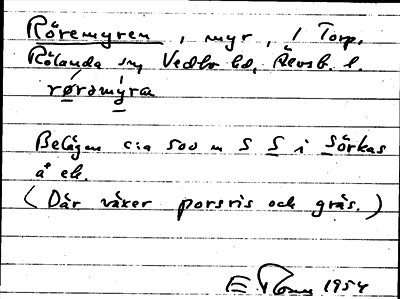 Röremyren, myr, i Torp,
Rölanda sn, Vedbo hd, Älvsb. l.
rørəmýra
Belägen c:a 500 m S S i Sörkas
å eh.
(Där växer porsris och gräs.)
E 1954